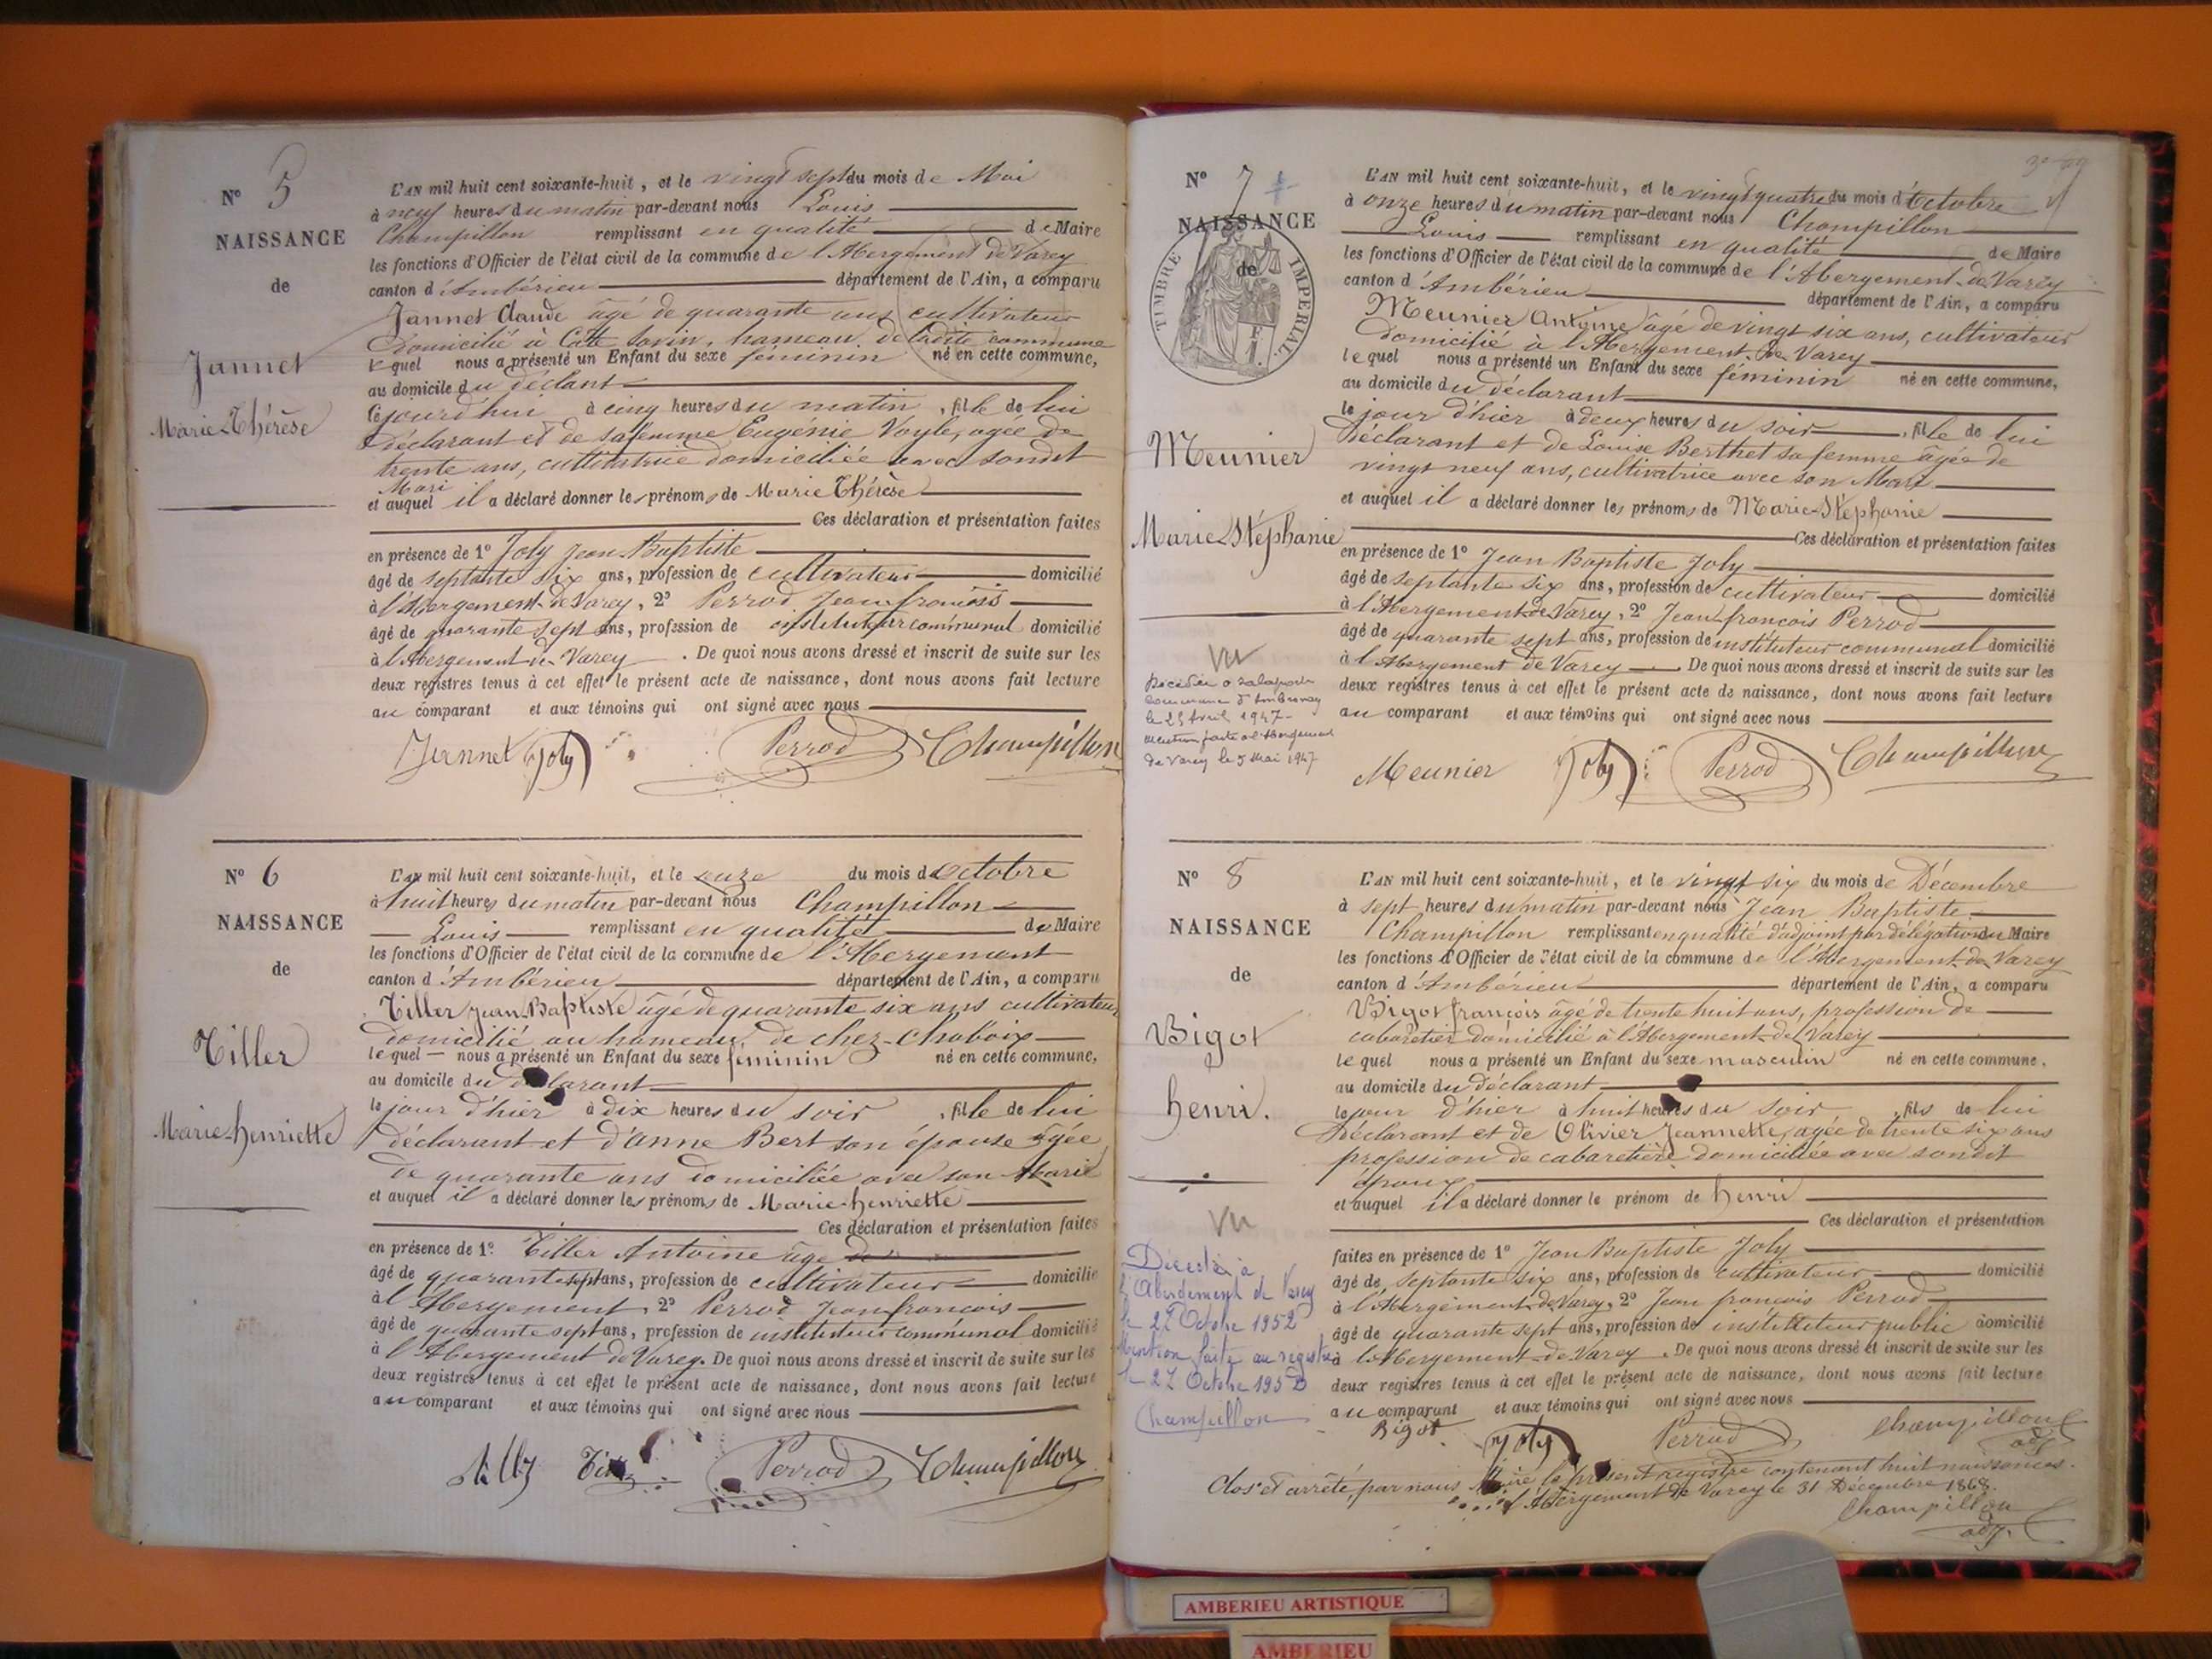 N° 5
NAISSANCE
de
Jannet
Marie Thérèse
L'AN mil huit cent soixante-huit, et le vingt sept du mois de Mai
à neuf heures du matin par-devant nous Louis
Champillon remplissant en qualité de Maire
les fonctions d'Officier de l'état civil de la commune de l'Abergement de Varey
canton d'Ambérieu département de l'Ain, a comparu
Jannet Claude âgé de quarante ans cultivateur
Domicilié à Côte Savin, hameau de ladite commune
lequel nous a présenté un Enfant du sexe féminin né en cette commune,
au domicile du déclant
cejourd'hui à cinq heures du matin, fille de lui
Déclarant et de sa femme Eugénie Voyle, agée de
trente ans, cultivatrice domiciliée avec sondit
Mari
et auquel il a déclaré donner les prénoms de Marie Thérèse
Ces déclaration et présentation faites
en présence de 1° Joly Jean Baptiste
âgé de septante six ans, profession de cultivateur domicilié
à l'Abergement de Varey, 2° Perrod Jean françois
âgé de quarante sept ans, profession de instituteur communal domicilié
à l'Abergement de Varey. De quoi nous avons dressé et inscrit de suite sur les
deux registres tenus à cet effet le présent acte de naissance, dont nous avons fait lecture
au comparant et aux témoins qui ont signé avec nous
Jannet Joly Perrod Champillon
N° 6
NAISSANCE
de
Tiller
Marie henriette
L'AN mil huit cent soixante-huit, et le onze du mois d'Octobre
à huit heures du matin par-devant nous Champillon
Louis remplissant en qualité de Maire
les fonctions d'Officier de l'état civil de la commune de l'Abergement
canton d'Ambérieu département de l'Ain, a comparu
Tiller Jean Baptiste âgé de quarante six ans cultivateur
domicilié au hameau de chez-Chaboix
lequel nous a présenté un Enfant du sexe féminin né en cette commune,
au domicile du déclarant
le jour d'hier à dix heures du soir, fille de lui
déclarant et d'anne Bert son épouse âgée
de quarante ans domiciliée avec son Marie
et auquel il a déclaré donner les prénoms de Marie-henriette
Ces déclaration et présentation faites
en présence de 1° Tiller Antoine âgé de
âgé de quarante sept ans, profession de cultivateur domicilié
à l'Abergement, 2° Perrod Jean françois
âgé de quarante sept ans, profession de instituteur communal domicilié
à l'Abergement de Varey. De quoi nous avons dressé et inscrit de suite sur les
deux registres tenus à cet effet le présent acte de naissance, dont nous avons fait lecture
au comparant et aux témoins qui ont signé avec nous
Perrod Champillon
N° 7
NAISSANCE
de
TIMBRE IMPERIAL
Meunier
Marie Stéphanie
vu
Décédée à
commune d'Ambronay
le 25 Avril 1947
Mention faite à l'Abergement
de Varey le 5 Mai 1947
L'AN mil huit cent soixante-huit, et le vingt quatre du mois d'Octobre
à onze heures du matin par-devant nous Champillon
Louis remplissant en qualité de Maire
les fonctions d'Officier de l'état civil de la commune de l'Abergement de Varey
canton d'Ambérieu département de l'Ain, a comparu
Meunier Antoine âgé de vingt six ans, cultivateur
domicilié à l'Abergement de Varey
lequel nous a présenté un Enfant du sexe féminin né en cette commune,
au domicile du déclarant
le jour d'hier à deux heures du soir, fille de lui
Déclarant et de Louise Berthet sa femme âgée de
vingt neuf ans, cultivatrice avec son Mari
et auquel il a déclaré donner les prénoms de Marie-Stéphanie
Ces déclaration et présentation faites
en présence de 1° Jean Baptiste Joly
âgé de septante six ans, profession de cultivateur domicilié
à l'Abergement de Varey, 2° Jean françois Perrod
âgé de quarante sept ans, profession de instituteur communal domicilié
à l'Abergement de Varey De quoi nous avons dressé et inscrit de suite sur les
deux registres tenus à cet effet le présent acte de naissance, dont nous avons fait lecture
au comparant et aux témoins qui ont signé avec nous
Meunier Joly Perrod Champillon
N° 8
NAISSANCE
de
Bigot
henri.
vu
Décédé à
l'Abergement de Varey
le 27 Octobre 1952
Mention faite au registre
le 27 Octobre 1952
Champillon
L'AN mil huit cent soixante-huit, et le vingt six du mois de Décembre
à sept heures du matin par-devant nous Jean Baptiste
Champillon remplissant en qualité d'adjoint par délégation du Maire
les fonctions d'Officier de l'état civil de la commune de l'Abergement de Varey
canton d'Ambérieu département de l'Ain, a comparu
Bigot françois âgé de trente huit ans, profession de
cabaretier domicilié à l'Abergement de Varey
lequel nous a présenté un Enfant du sexe masculin né en cette commune,
au domicile du déclarant
le jour d'hier à huit heures du soir fils de lui
Déclarant et de Olivier Jeannette, agée de trente six ans
profession de cabaretière domiciliée avec sondit
époux
et auquel il a déclaré donner le prénom de henri
Ces déclaration et présentation
faites en présence de 1° Jean Baptiste Joly
âgé de septante six ans, profession de cultivateur domicilié
à l'Abergement de Varey, 2° Jean françois Perrod
âgé de quarante sept ans, profession de instituteur public domicilié
à l'Abergement de Varey. De quoi nous avons dressé et inscrit de suite sur les
deux registres tenus à cet effet le présent acte de naissance, dont nous avons fait lecture
au comparant et aux témoins qui ont signé avec nous
Bigot Joly Perrod Champillon adj
Clos et arrêté, par nous Maire le présent registre contenant huit naissances.
l'Abergement de Varey le 31 Décembre 1868.
Champillon
adj.
AMBERIEU ARTISTIQUE
AMBERIEU